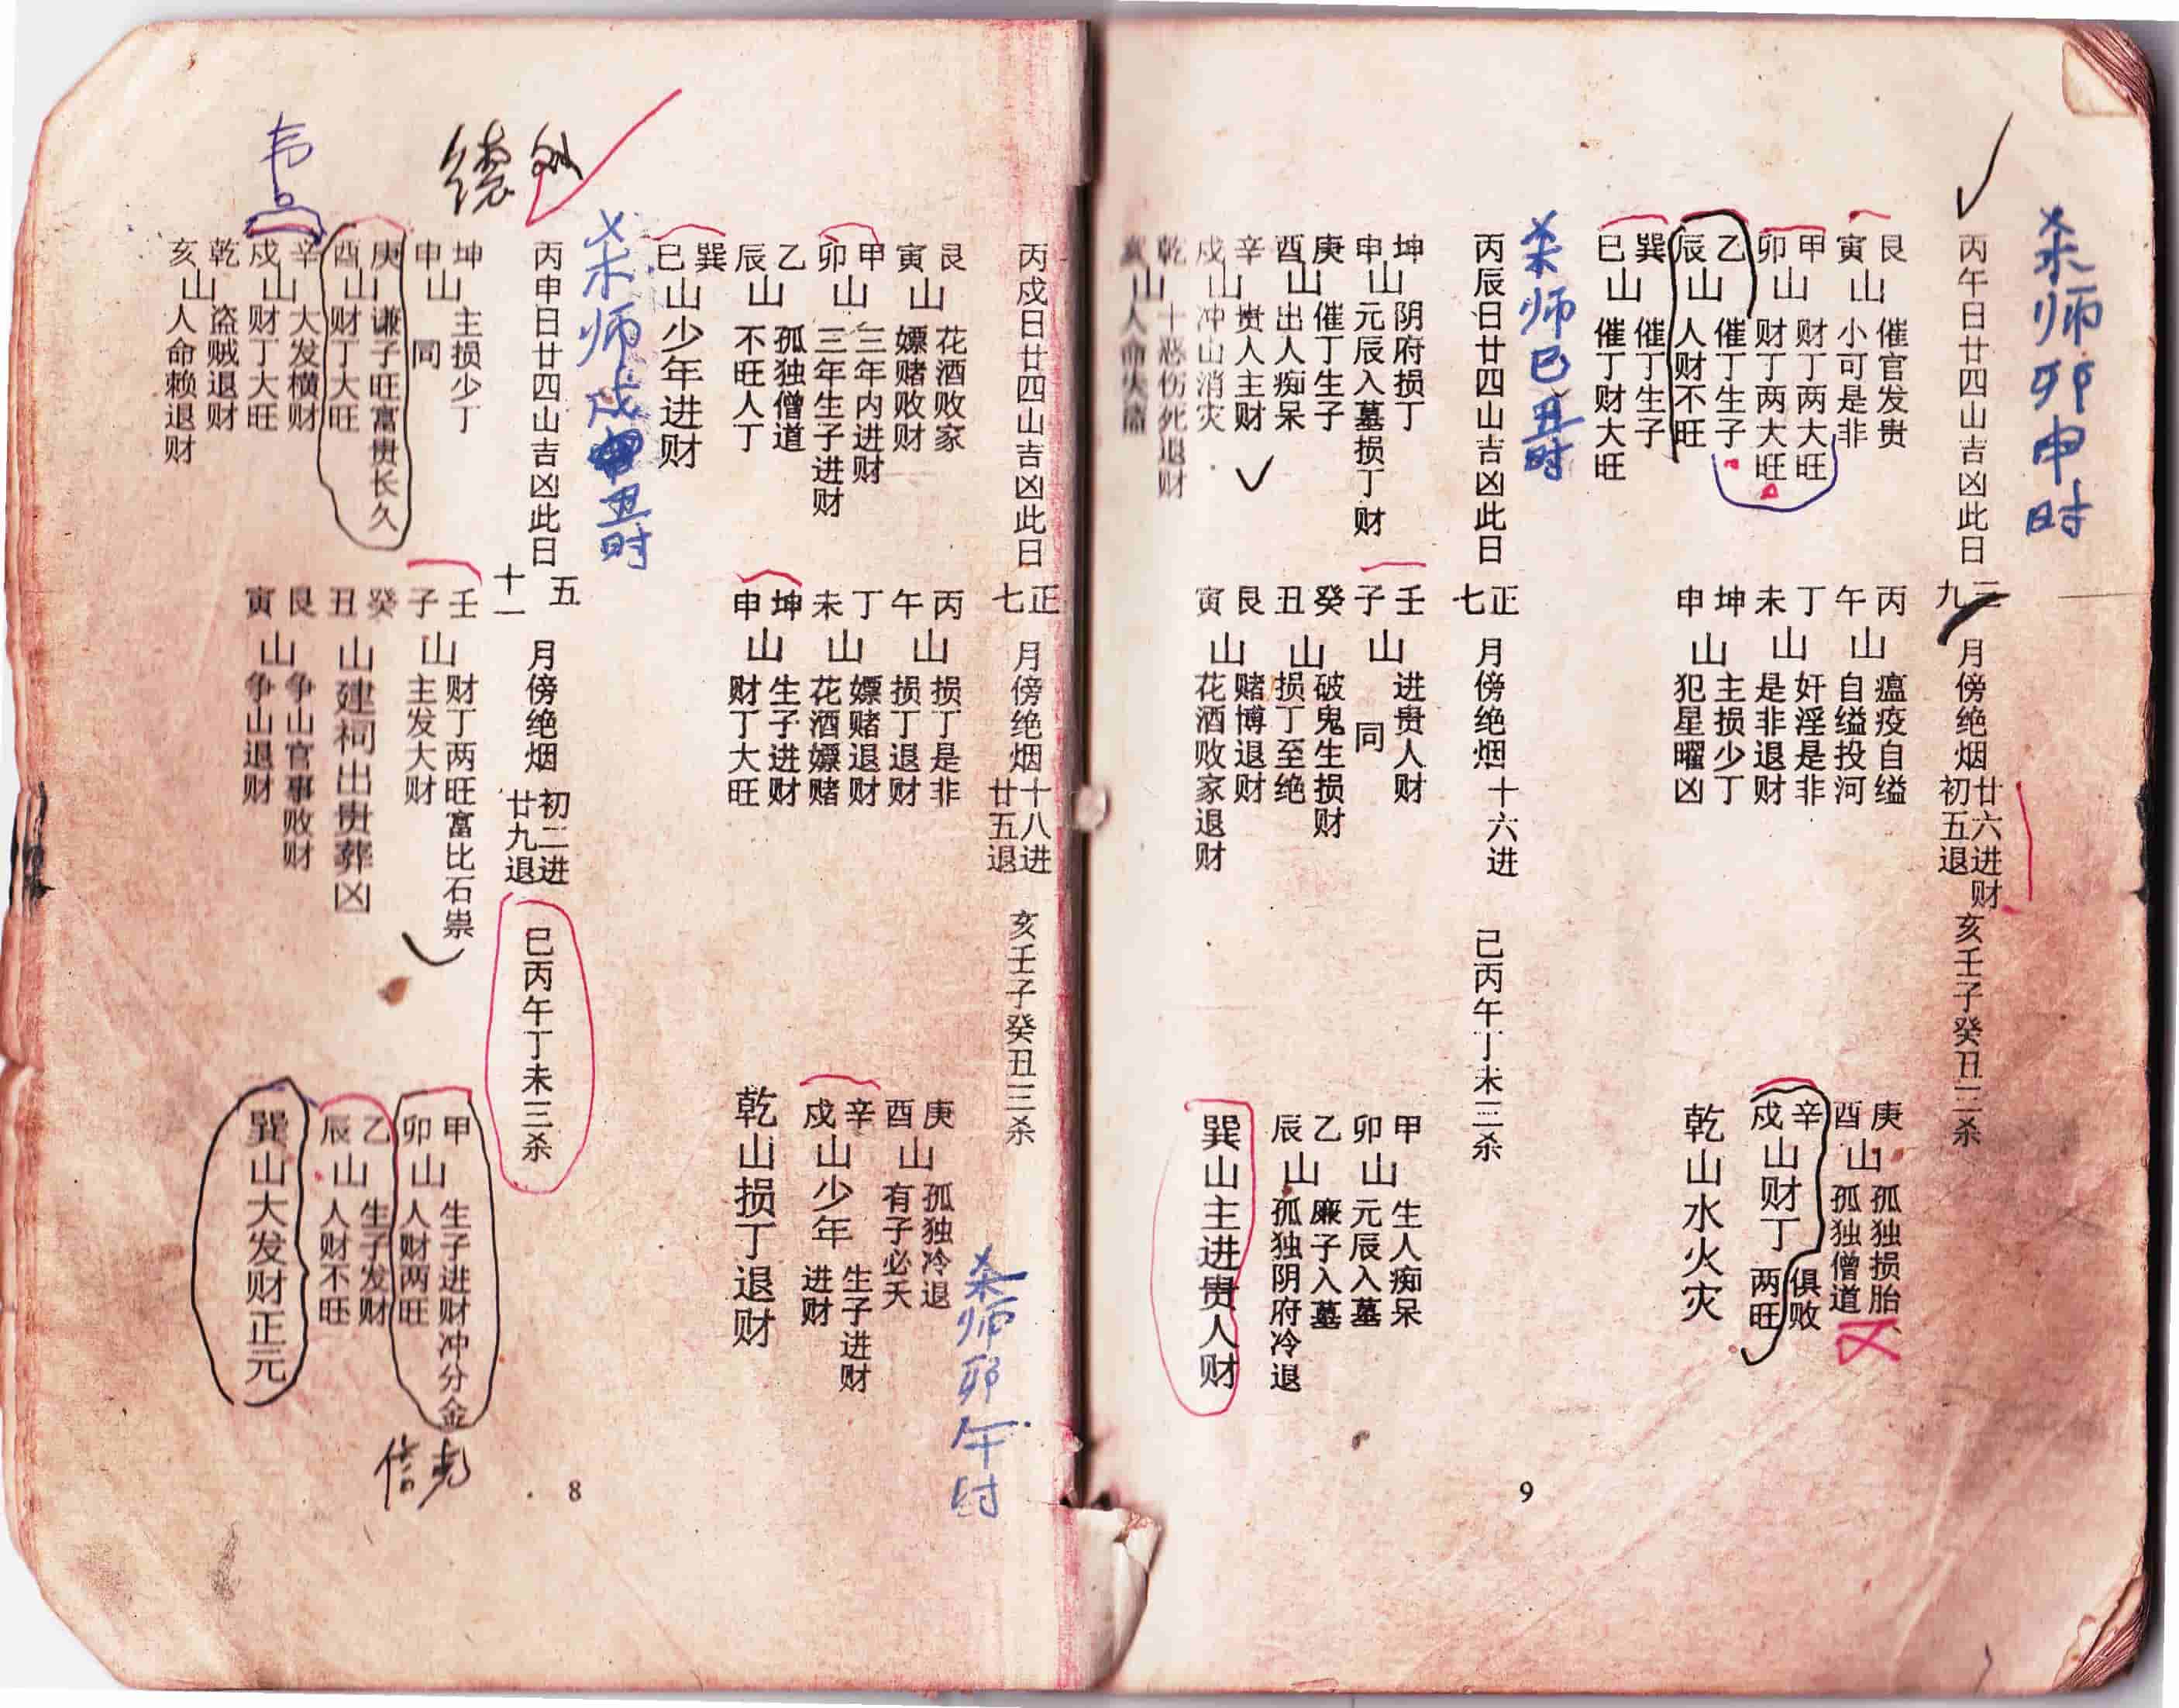 丙戌日廿四山吉凶此日
正七
月傍绝烟
十八进
廿五退
亥壬子癸丑三杀
杀师卯午时
艮寅山
花酒败家
嫖赌败财
甲卯山
三年内进财
三年生子进财
乙辰山
孤独僧道
不旺人丁
巽巳山少年进财
丙午山
损丁是非
损丁退财
丁未山
嫖赌退财
花酒嫖赌
坤申山
生子进财
财丁大旺
庚酉山
孤独冷退
有子必夭
辛戌山少年
生子进财
进财
乾山损丁退财
杀师戌申丑时
丙申日廿四山吉凶此日
五十一
月傍绝烟
初二进
廿九退
巳丙午丁未三杀
坤申山
主损少丁
同
庚酉山
谦子旺富贵长久
财丁大旺
辛戌山
大发横财
财丁大旺
乾亥山
盗贼退财
人命赖退财
韦
壬子山
财丁两旺富比石崇
主发大财
癸丑山建祠出贵葬凶
艮寅山
争山官事败财
争山退财
甲卯山
生子进财冲分金
人财两旺
乙辰山
生子发财
人财不旺
巽山大发财正元
8
杀师卯申时
丙午日廿四山吉凶此日
三九
月傍绝烟
廿六进财
初五退
亥壬子癸丑三杀
艮寅山
催官发贵
小可是非
甲卯山
财丁两大旺
财丁两大旺
乙辰山
催丁生子
人财不旺
巽巳山
催丁生子
催丁财大旺
丙午山
瘟疫自缢
自缢投河
丁未山
奸淫是非
是非退财
坤申山
主损少丁
犯星曜凶
庚酉山
孤独损胎
孤独僧道
辛戌山财丁
俱败
两旺
乾山水火灾
杀师巳丑时
丙辰日廿四山吉凶此日
正七
月傍绝烟
十六进
己丙午丁未三杀
坤申山
阴府损丁
元辰入墓损丁财
庚酉山
催丁生子
出人痴呆
辛戌山
贵人主财
冲山消灾
乾亥山
十恶伤死退财
壬子山
进贵人财
同
癸丑山
破鬼生损财
损丁至绝
艮寅山
赌博退财
花酒败家退财
甲卯山
生人痴呆
元辰入墓
乙辰山
廉子入墓
孤独阴府冷退
巽山主进贵人财
9